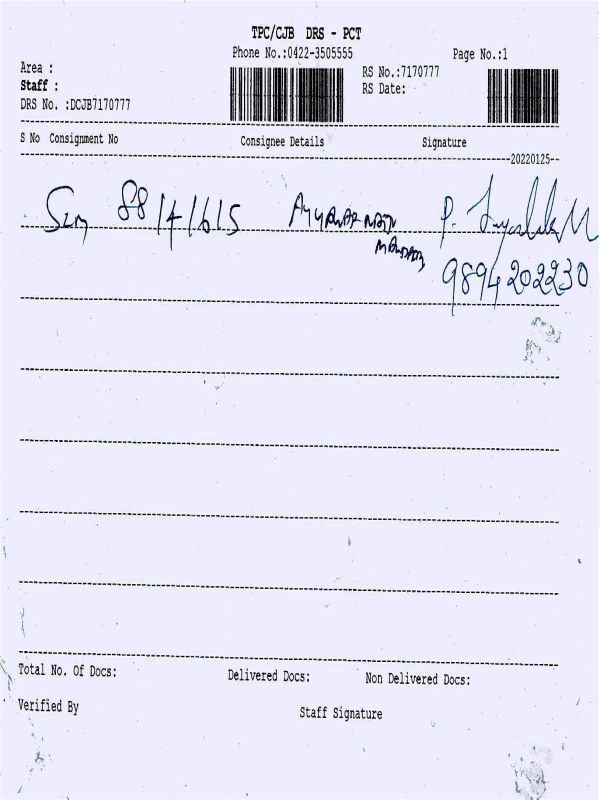 TPC/CJB DRS - PCT
Phone No.:0422-3505555 Page No.:1
Area : RS No.:7170777
Staff : RS Date:
DRS No. :DCJB7170777
S No Consignment No Consignee Details Signature
20220125
P.
9894202230
Total No. Of Docs: Delivered Docs: Non Delivered Docs:
Verified By Staff Signature